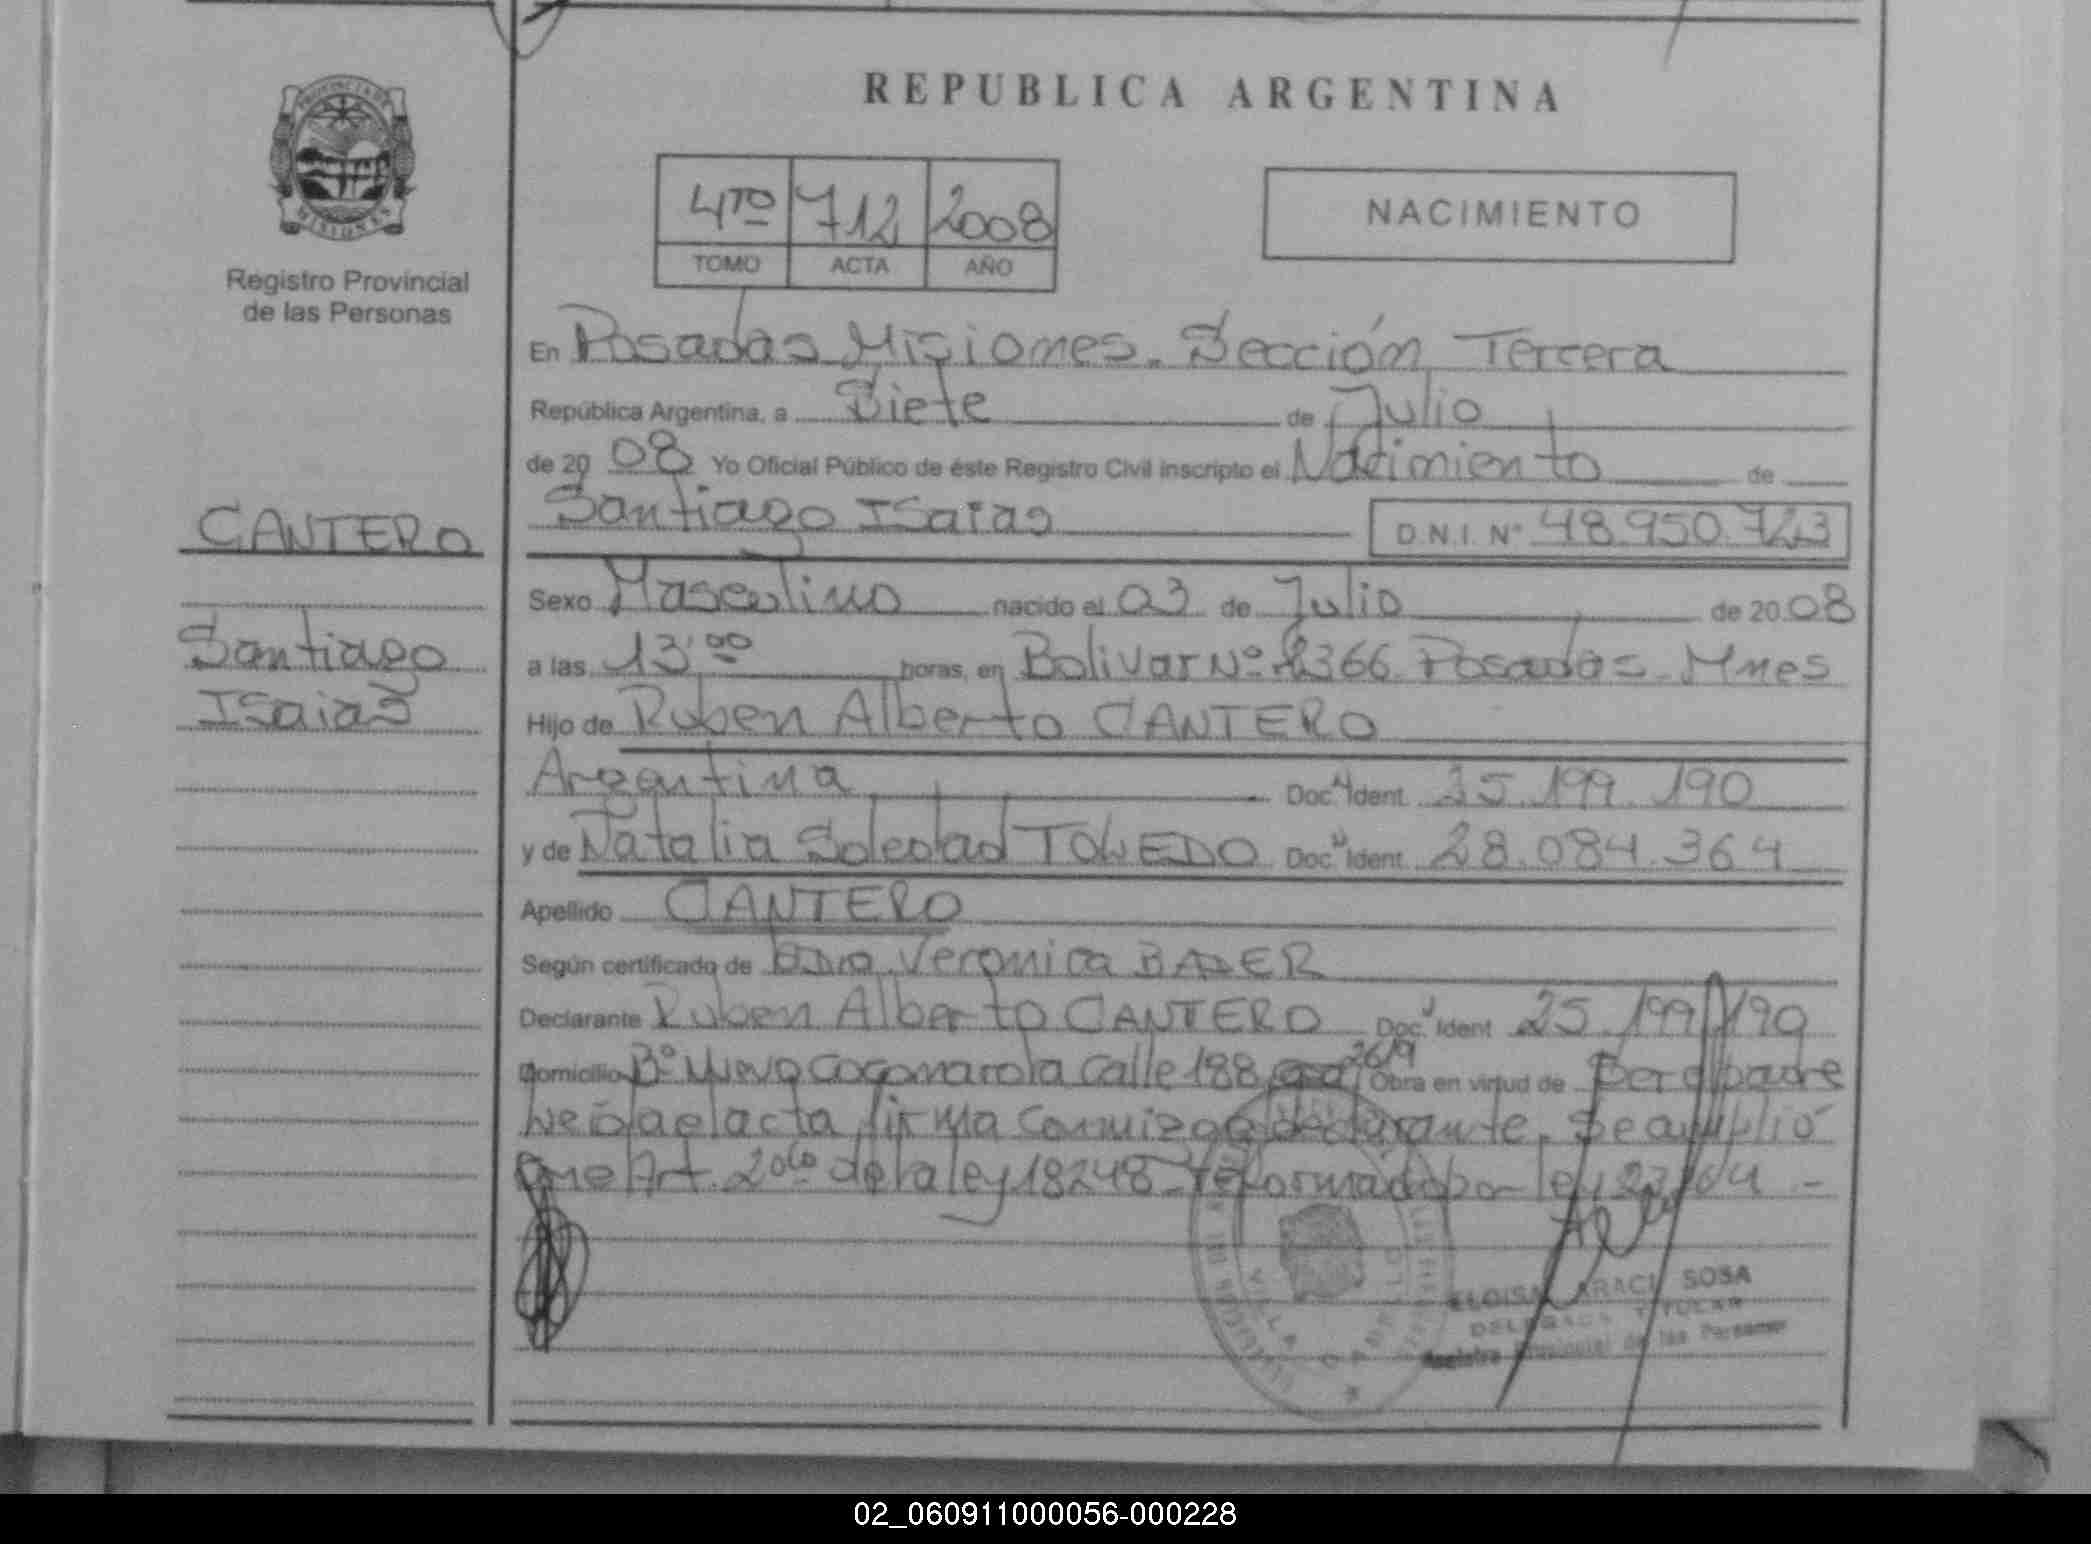 REPUBLICA ARGENTINA
4TO 712 2008
TOMO ACTA AÑO
NACIMIENTO
PROVINCIA DE
MISIONES
Registro Provincial
de las Personas
CANTERO
Santiago
Isaias
En Posadas Misiones. Sección Tercera
República Argentina, a Siete de Julio
de 2008 Yo Oficial Público de éste Registro Civil inscripto el Nacimiento de
Santiago Isaias D.N.I. Nº 48.950.723
Sexo Masculino nacido el 03 de Julio de 2008
a las 13:00 horas, en Bolivar Nº 2366 Posadas - Mnes
Hijo de Ruben Alberto CANTERO
Argentina Doc. Ident. 25.199.190
y de Natalia Soledad TOLEDO Doc. Ident. 28.084.364
Apellido CANTERO
Según certificado de Veronica BADER
Declarante Ruben Alberto CANTERO Doc. Ident 25.199.190
Domicilio Bº Nuevo Cocomarola Calle 188 2619 Obra en virtud de Ser el padre
Leida el acta, firma conmigo el declarante. Se
Art. 20 de la ley 18248 - reformado por ley
VILLA CABELLO
ELOISA ARACI SOSA
DELEGADA TITULAR
Registro Provincial de las Personas
02_060911000056-000228